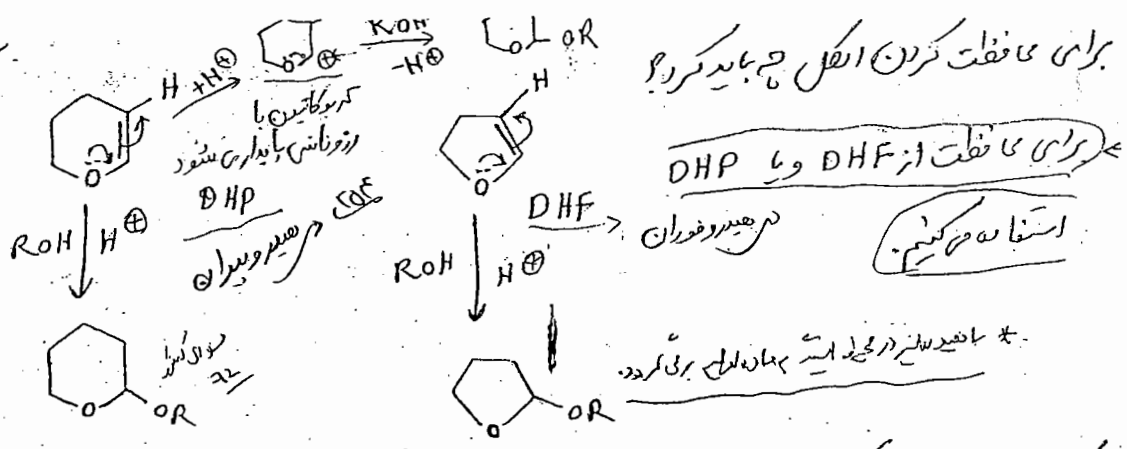 برای محافظت کردن الکل چه باید کرد؟
برای محافظت از DHF و یا DHP
استفاده می کنیم.
+H⊕
ROH
-H⊕
O
OR
H
کربوکاتیون با
رزونانس پایدار می شود
O
DHP
دی هیدروپیران
ROH
H⊕
O
OR
سوال کنکور
72
H
O
DHF
دی هیدروفوران
ROH
H⊕
O
OR
* با هیدرولیز در محیط اسیدی به ماده اولیه برمی گردد.